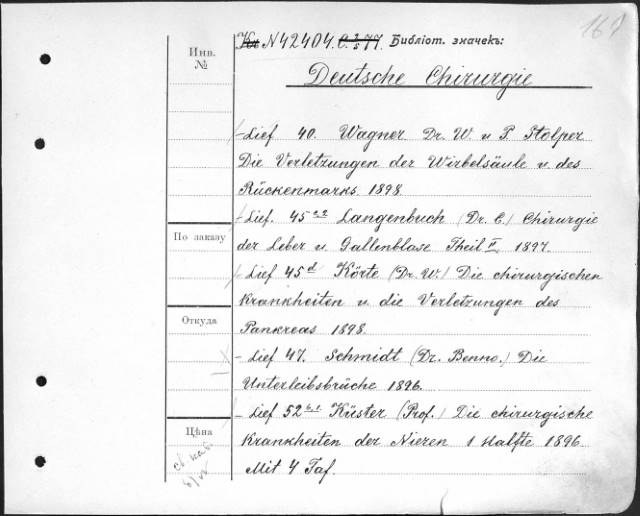 167
N 42404. Библiот. значекъ:
Инв.
№
Deutsche Chirurgie
- Lief 40. Wagner Dr. W. u P. Stolper
Die Verletzungen der Wirbelsäule u. des
Rückenmarks. 1898.
- Lief. 45 Langenbuch (Dr. C.) Chirurgie
По заказу
der Leber u. Gallenblase Theil II, 1897.
- Lief 45d Körte (Dr. W.) Die chirurgischen
Krankheiten u. die Verletzungen des
Откуда
Pankreas 1898.
- Lief 47. Schmidt (Dr. Benno.) Die
Unterleibsbrüche 1896.
- Lief 52 b, 1. Küster (Prof.) Die chirurgische
Цѣна
Krankheiten der Nieren 1 Halfte 1896.
Mit 4 Taf.